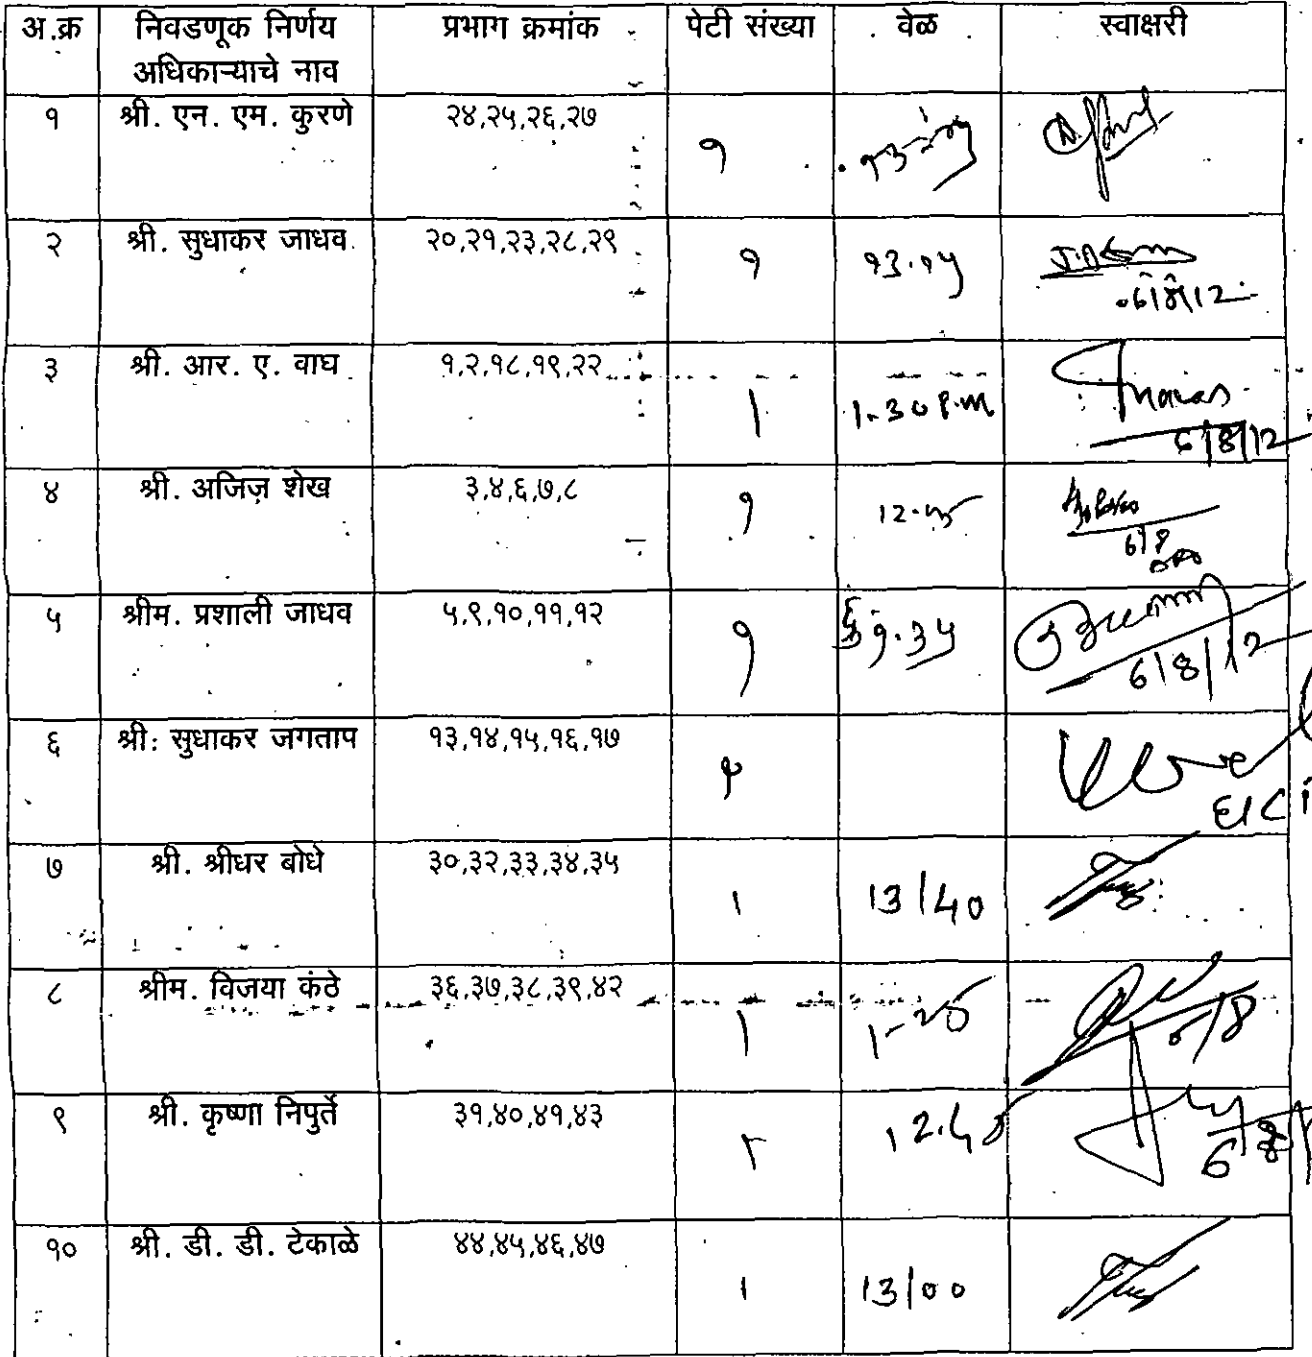 अ.क्र निवडणूक निर्णय अधिकाऱ्याचे नाव प्रभाग क्रमांक पेटी संख्या वेळ स्वाक्षरी
१ श्री. एन. एम. कुरणे २४,२५,२६,२७ १
२ श्री. सुधाकर जाधव २०,२१,२३,२८,२९ १ १३.१५
6/8/12
३ श्री. आर. ए. वाघ १,२,१८,१९,२२ 1 1.30 P.M
6/8/12
४ श्री. अजिज़ शेख ३,४,६,७,८ १
6/8
५ श्रीम. प्रशाली जाधव ५,९,१०,११,१२ १ १.३५
6/8/12
६ श्री: सुधाकर जगताप १३,१४,१५,१६,१७
७ श्री. श्रीधर बोधे ३०,३२,३३,३४,३५ 1 13/40
८ श्रीम. विजया कंठे ३६,३७,३८,३९,४२ 1
९ श्री. कृष्णा निपुर्ते ३१,४०,४१,४३
१० श्री. डी. डी. टेकाळे ४४,४५,४६,४७ 1 13/00